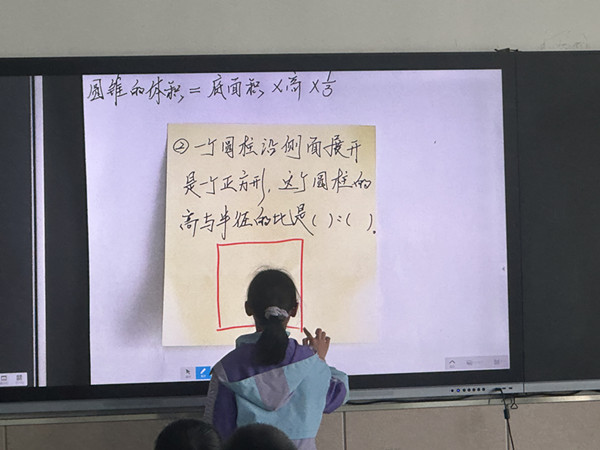 圆锥的体积=底面积×高×1/3
②一个圆柱沿侧面展开
是一个正方形,这个圆柱的
高与半径的比是( ):( ).